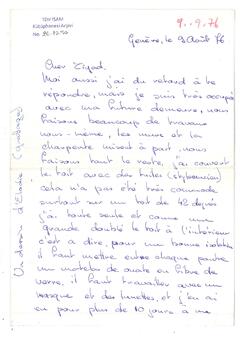 TDV İSAM
Kütüphanesi Arşivi
No
9..9.76
Genève, le 9 Août 76
Cher Ziyad.
Moi aussi j'ai du retard à te
répondre, mais je suis très occupé
avec ma future demeure, nous
faisons beaucoup de travaux
nous-même, les murs et la
charpente mises à part, nous
faisons tout le reste, j'ai couvert
le toit avec des tuiles
cela n'a pas été très commode
surtout sur un toit de 42 degrés
j'ai toute seule et comme une
grande doublé le toit à l'intérieur
c'est a dire, pour une bonne isolation
il faut mettre entre chaque poutre
un matelas de ouate en fibre de
verre, il faut travailler avec un
masque et des lunettes, et j'en ai
eu pour plus de 10 jours à me
Un dessin d'Elodie